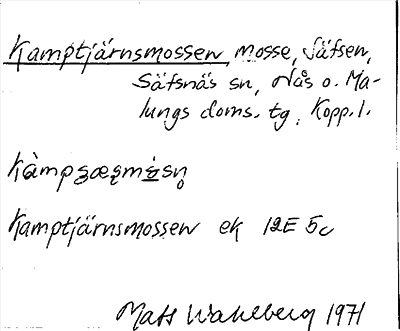 Kamptjärnsmossen, mosse, Säfsen,
Säfsnäs sn, Nås o. Ma-
lungs doms. tg, Kopp. l.
Kamptjärnsmossen ek 12E 5c
Mats Wahlberg 1971